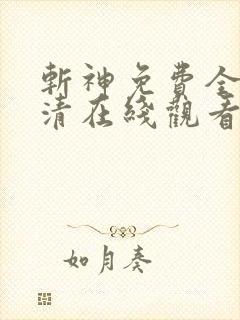 斬神免費全
清在綫觀看
如月奏